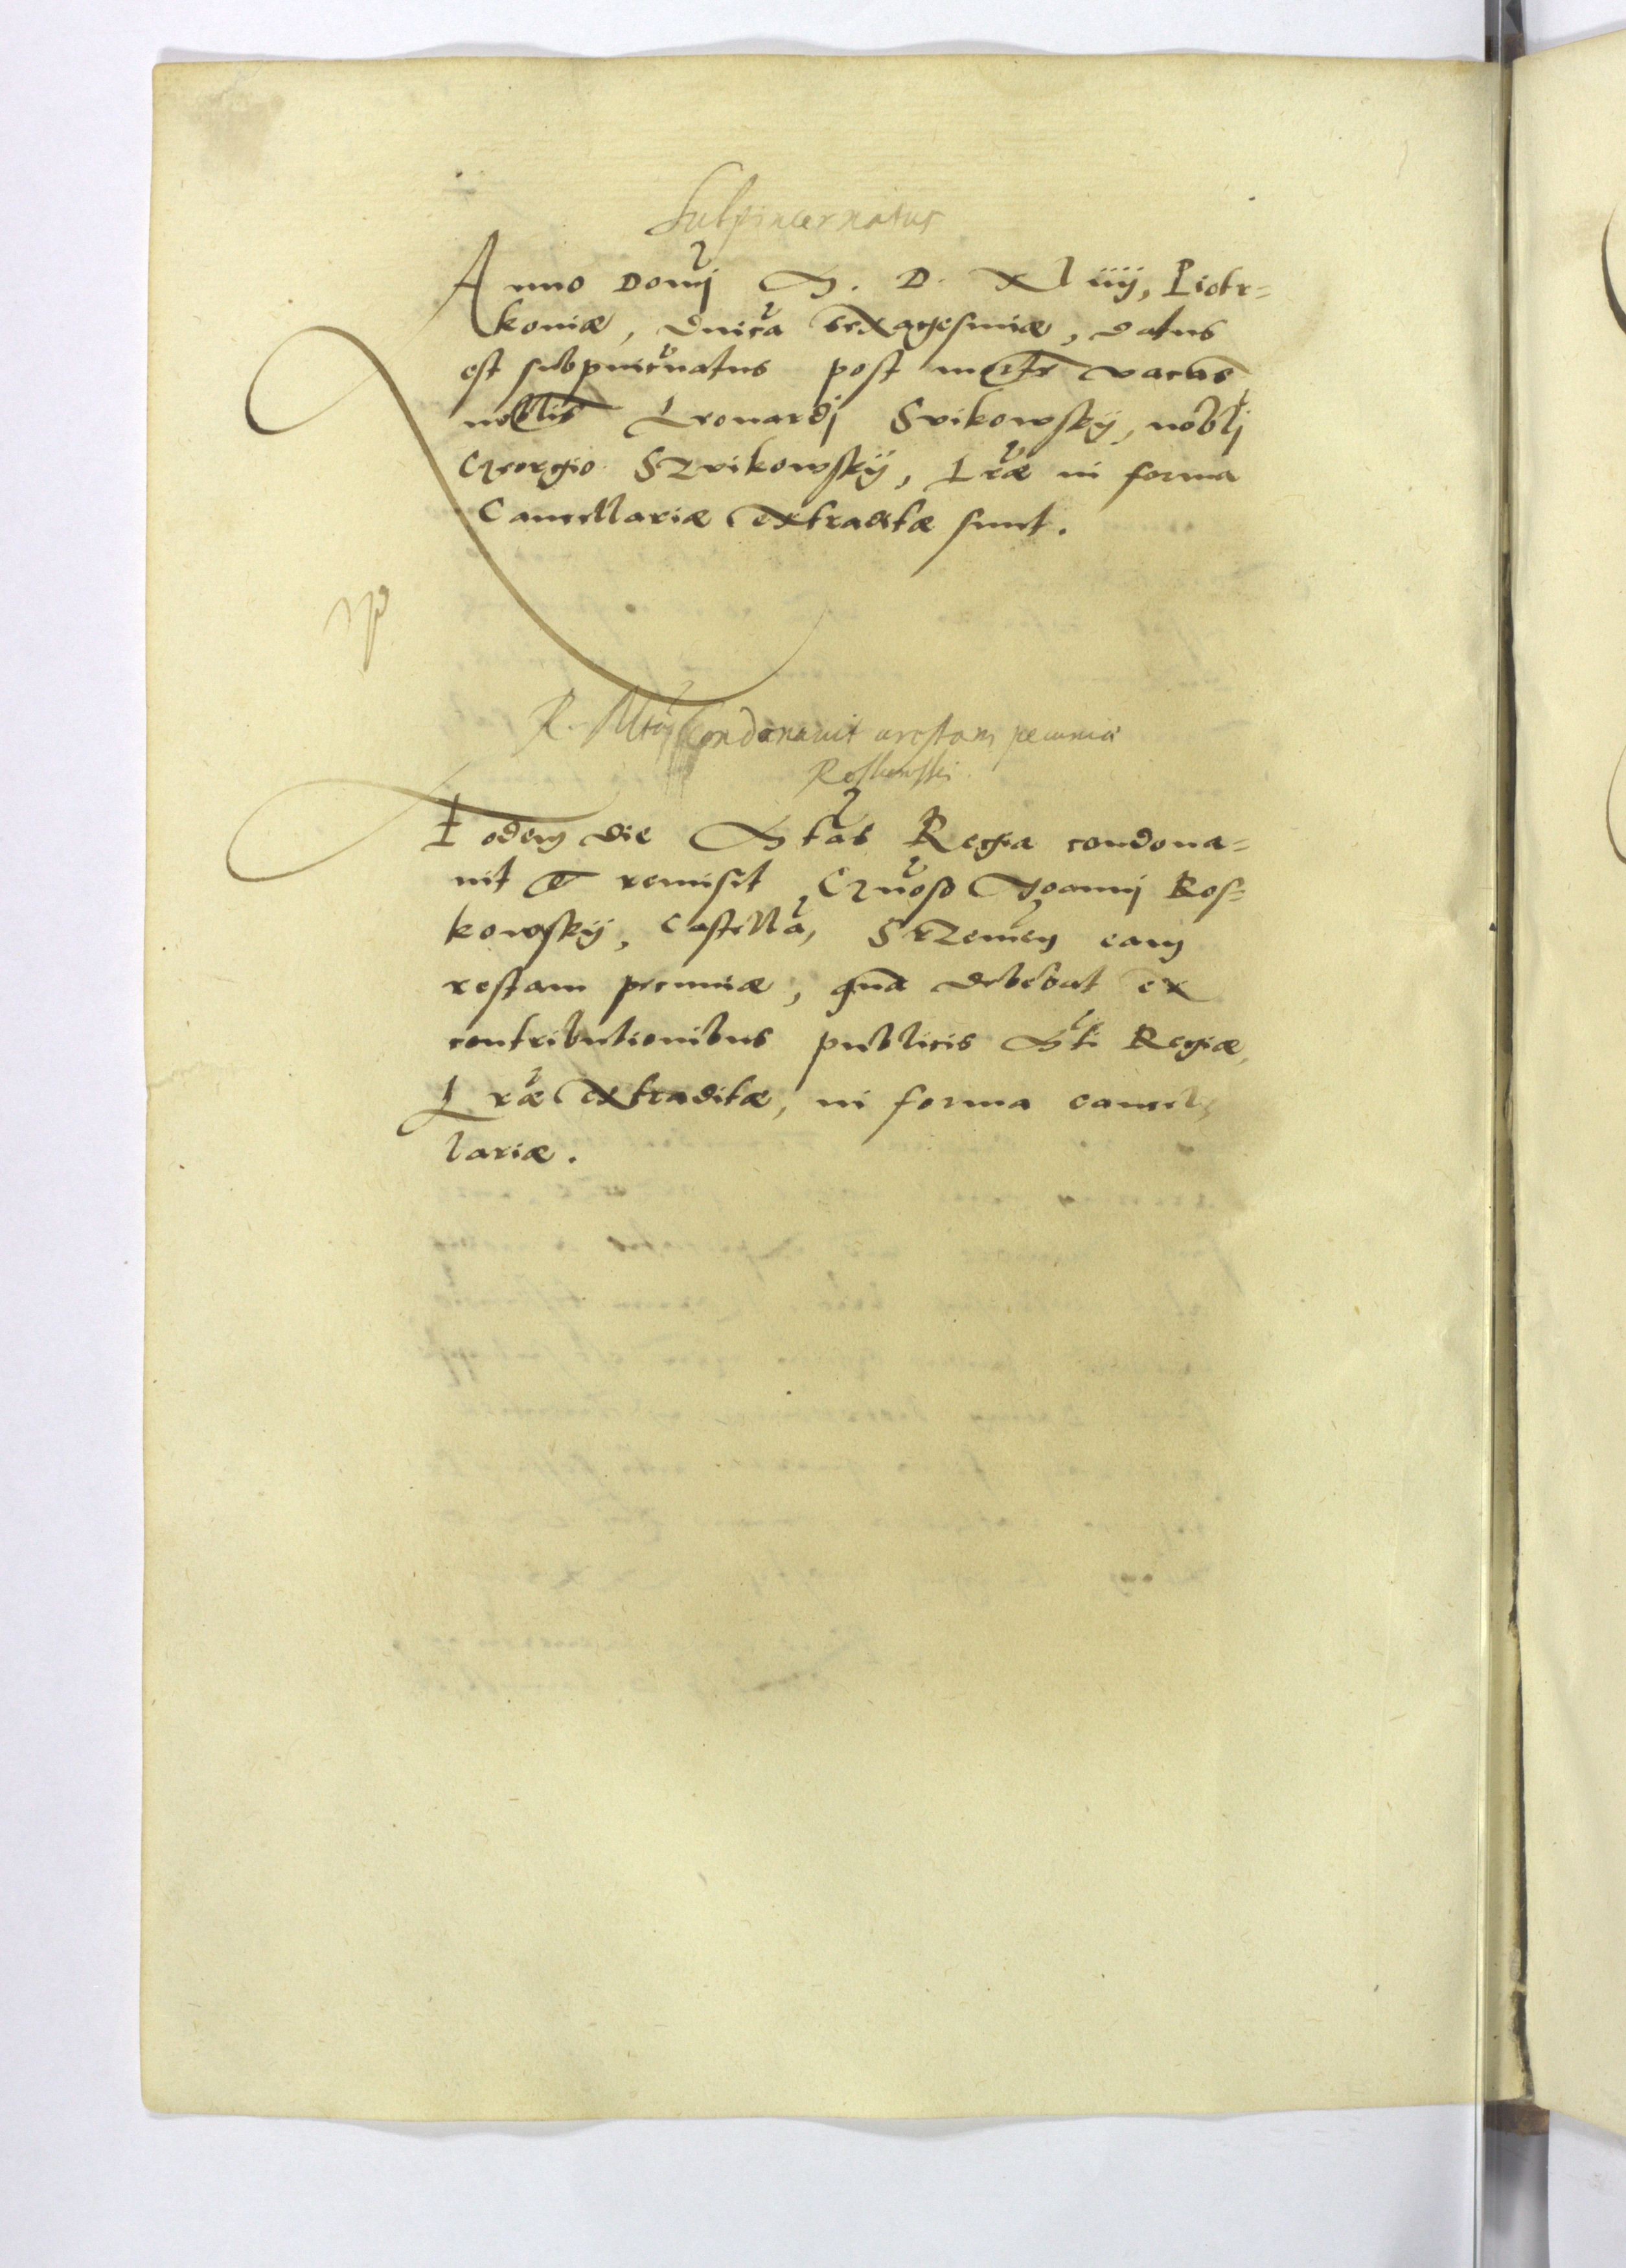 Subpincernatus
Anno Domj M. D. Xliiij, Piotr=
koniæ, dnica sexagesimæ, datus
est subpincnatus post mortē vacās
noblis Leonardj Srikowskÿ, noblj
Georgio SZrikowskÿ, Lræ in forma
Cancellariæ extraditæ sunt.
R. Mtas condonavit restam pecuniæ
Roskowskj
Eodem die Mtas Regia condona=
uit et remisit Gnoso Joannj Ros=
kowskÿ, Castella, SrZemen eam
restam pecuniæ, quā debebat ex
contributionibus publicis Mti Regiæ,
Lræ extraditæ, in forma cancel,
lariæ.